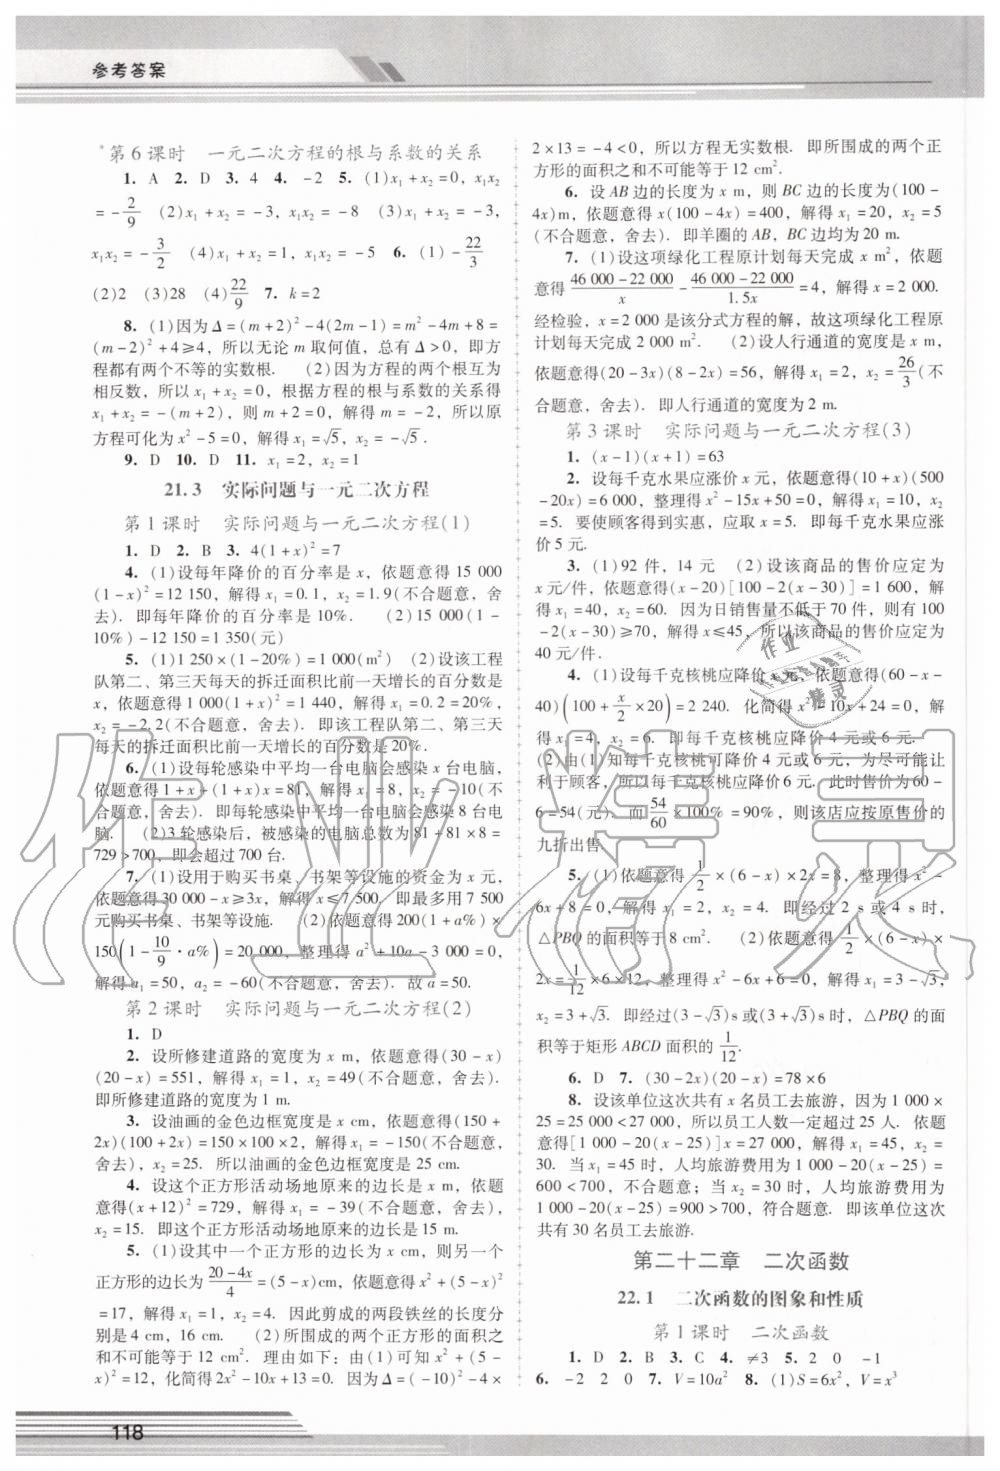 参考答案
*第6课时 一元二次方程的根与系数的关系
1. A 2. D 3. 4 4. -2 5. (1)x₁+x₂=0, x₁x₂
=-2/9 (2)x₁+x₂=-3, x₁x₂=-8 (3)x₁+x₂=-3,
x₁x₂=-3/2 (4)x₁+x₂=1, x₁x₂=-5 6. (1)-22/3
(2)2 (3)28 (4)22/9 7. k=2
8. (1)因为Δ=(m+2)²-4(2m-1)=m²-4m+8=
(m-2)²+4≥4, 所以无论m取何值, 总有Δ>0, 即方
程都有两个不等的实数根. (2)因为方程的两个根互为
相反数, 所以x₁+x₂=0, 根据方程的根与系数的关系得
x₁+x₂=-(m+2), 则m+2=0, 解得m=-2, 所以原
方程可化为x²-5=0, 解得x₁=√5, x₂=-√5.
9. D 10. D 11. x₁=2, x₂=1
21.3 实际问题与一元二次方程
第1课时 实际问题与一元二次方程(1)
1. D 2. B 3. 4(1+x)²=7
4. (1)设每年降价的百分率是x, 依题意得15 000
(1-x)²=12 150, 解得x₁=0.1, x₂=1.9(不合题意, 舍
去). 即每年降价的百分率是10%. (2)15 000(1-
10%)-12 150=1 350(元)
5. (1)1 250×(1-20%)=1 000(m²) (2)设该工程
队第二、第三天每天的拆迁面积比前一天增长的百分数是
x, 依题意得1 000(1+x)²=1 440, 解得x₁=0.2=20%,
x₂=-2.2(不合题意, 舍去). 即该工程队第二、第三天
每天的拆迁面积比前一天增长的百分数是20%.
6. (1)设每轮感染中平均一台电脑会感染x台电脑,
依题意得1+x+(1+x)x=81, 解得x₁=8, x₂=-10(不
合题意, 舍去). 即每轮感染中平均一台电脑会感染8台电
脑. (2)3轮感染后, 被感染的电脑总数为81+81×8=
729>700, 即会超过700台.
7. (1)设用于购买书桌、书架等设施的资金为x元,
依题意得30 000-x≥3x, 解得x≤7 500. 即最多用7 500
元购买书桌、书架等设施. (2)依题意得200(1+a%)×
150(1-10/9·a%)=20 000, 整理得a²+10a-3 000=0,
解得a₁=50, a₂=-60(不合题意, 舍去). 故a=50.
第2课时 实际问题与一元二次方程(2)
1. D
2. 设所修建道路的宽度为x m, 依题意得(30-x)
(20-x)=551, 解得x₁=1, x₂=49(不合题意, 舍去).
即所修建道路的宽度为1 m.
3. 设油画的金色边框宽度是x cm, 依题意得(150+
2x)(100+2x)=150×100×2, 解得x₁=-150(不合题意,
舍去), x₂=25. 所以油画的金色边框宽度是25 cm.
4. 设这个正方形活动场地原来的边长是x m, 依题
意得(x+12)²=729, 解得x₁=-39(不合题意, 舍去),
x₂=15. 即这个正方形活动场地原来的边长是15 m.
5. (1)设其中一个正方形的边长为x cm, 则另一个
正方形的边长为(20-4x)/4=(5-x)cm, 依题意得x²+(5-x)²
=17, 解得x₁=1, x₂=4. 因此剪成的两段铁丝的长度分
别是4 cm, 16 cm. (2)所围成的两个正方形的面积之
和不可能等于12 cm². 理由如下: 由(1)可知x²+(5-
x)²=12, 化简得2x²-10x+13=0. 因为Δ=(-10)²-4×
2×13=-4<0, 所以方程无实数根. 即所围成的两个正
方形的面积之和不可能等于12 cm².
6. 设AB边的长度为x m, 则BC边的长度为(100-
4x)m, 依题意得x(100-4x)=400, 解得x₁=20, x₂=5
(不合题意, 舍去). 即羊圈的AB, BC边均为20 m.
7. (1)设这项绿化工程原计划每天完成x m², 依题
意得(46 000-22 000)/x-(46 000-22 000)/1.5x=4, 解得x=2 000.
经检验, x=2 000是该分式方程的解, 故这项绿化工程原
计划每天完成2 000 m². (2)设人行通道的宽度是x m,
依题意得(20-3x)(8-2x)=56, 解得x₁=2, x₂=26/3(不
合题意, 舍去). 即人行通道的宽度为2 m.
第3课时 实际问题与一元二次方程(3)
1. (x-1)(x+1)=63
2. 设每千克水果应涨价x元, 依题意得(10+x)(500
-20x)=6 000, 整理得x²-15x+50=0, 解得x₁=10, x₂
=5. 要使顾客得到实惠, 应取x=5. 即每千克水果应涨
价5元.
3. (1)92件, 14元 (2)设该商品的售价应定为
x元/件, 依题意得(x-20)[100-2(x-30)]=1 600, 解
得x₁=40, x₂=60. 因为日销售量不低于70件, 则有100
-2(x-30)≥70, 解得x≤45, 所以该商品的售价应定为
40元/件.
4. (1)设每千克核桃应降价x元, 依题意得(60-x-
40)(100+x/2×20)=2 240. 化简得x²-10x+24=0, 解
得x₁=4, x₂=6. 即每千克核桃应降价4元或6元.
(2)由(1)知每千克核桃可降价4元或6元, 为尽可能让
利于顾客, 所以每千克核桃应降价6元. 此时售价为60-
6=54(元). 而54/60×100%=90%, 则该店应按原售价的
九折出售.
5. (1)依题意得1/2×(6-x)×2x=8, 整理得x²-
6x+8=0, 解得x₁=2, x₂=4. 即经过2 s或4 s时,
△PBQ的面积等于8 cm². (2)依题意得1/2×(6-x)×
2x=1/12×6×12, 整理得x²-6x+6=0, 解得x₁=3-√3,
x₂=3+√3. 即经过(3-√3)s或(3+√3)s时, △PBQ的面
积等于矩形ABCD面积的1/12.
6. D 7. (30-2x)(20-x)=78×6
8. 设该单位这次共有x名员工去旅游, 因为1 000×
25=25 000<27 000, 所以员工人数一定超过25人. 依题
意得[1 000-20(x-25)]x=27 000, 解得x₁=45, x₂=
30. 当x₁=45时, 人均旅游费用为1 000-20(x-25)=
600<700, 不合题意; 当x₂=30时, 人均旅游费用为
1 000-20(x-25)=900>700, 符合题意. 即该单位这次
共有30名员工去旅游.
第二十二章 二次函数
22.1 二次函数的图象和性质
第1课时 二次函数
1. D 2. B 3. C 4. ≠3 5. 2 0 -1
6. -2 2 0 7. V=10a² 8. (1)S=6x², V=x³
118
作业精灵
作业
精灵